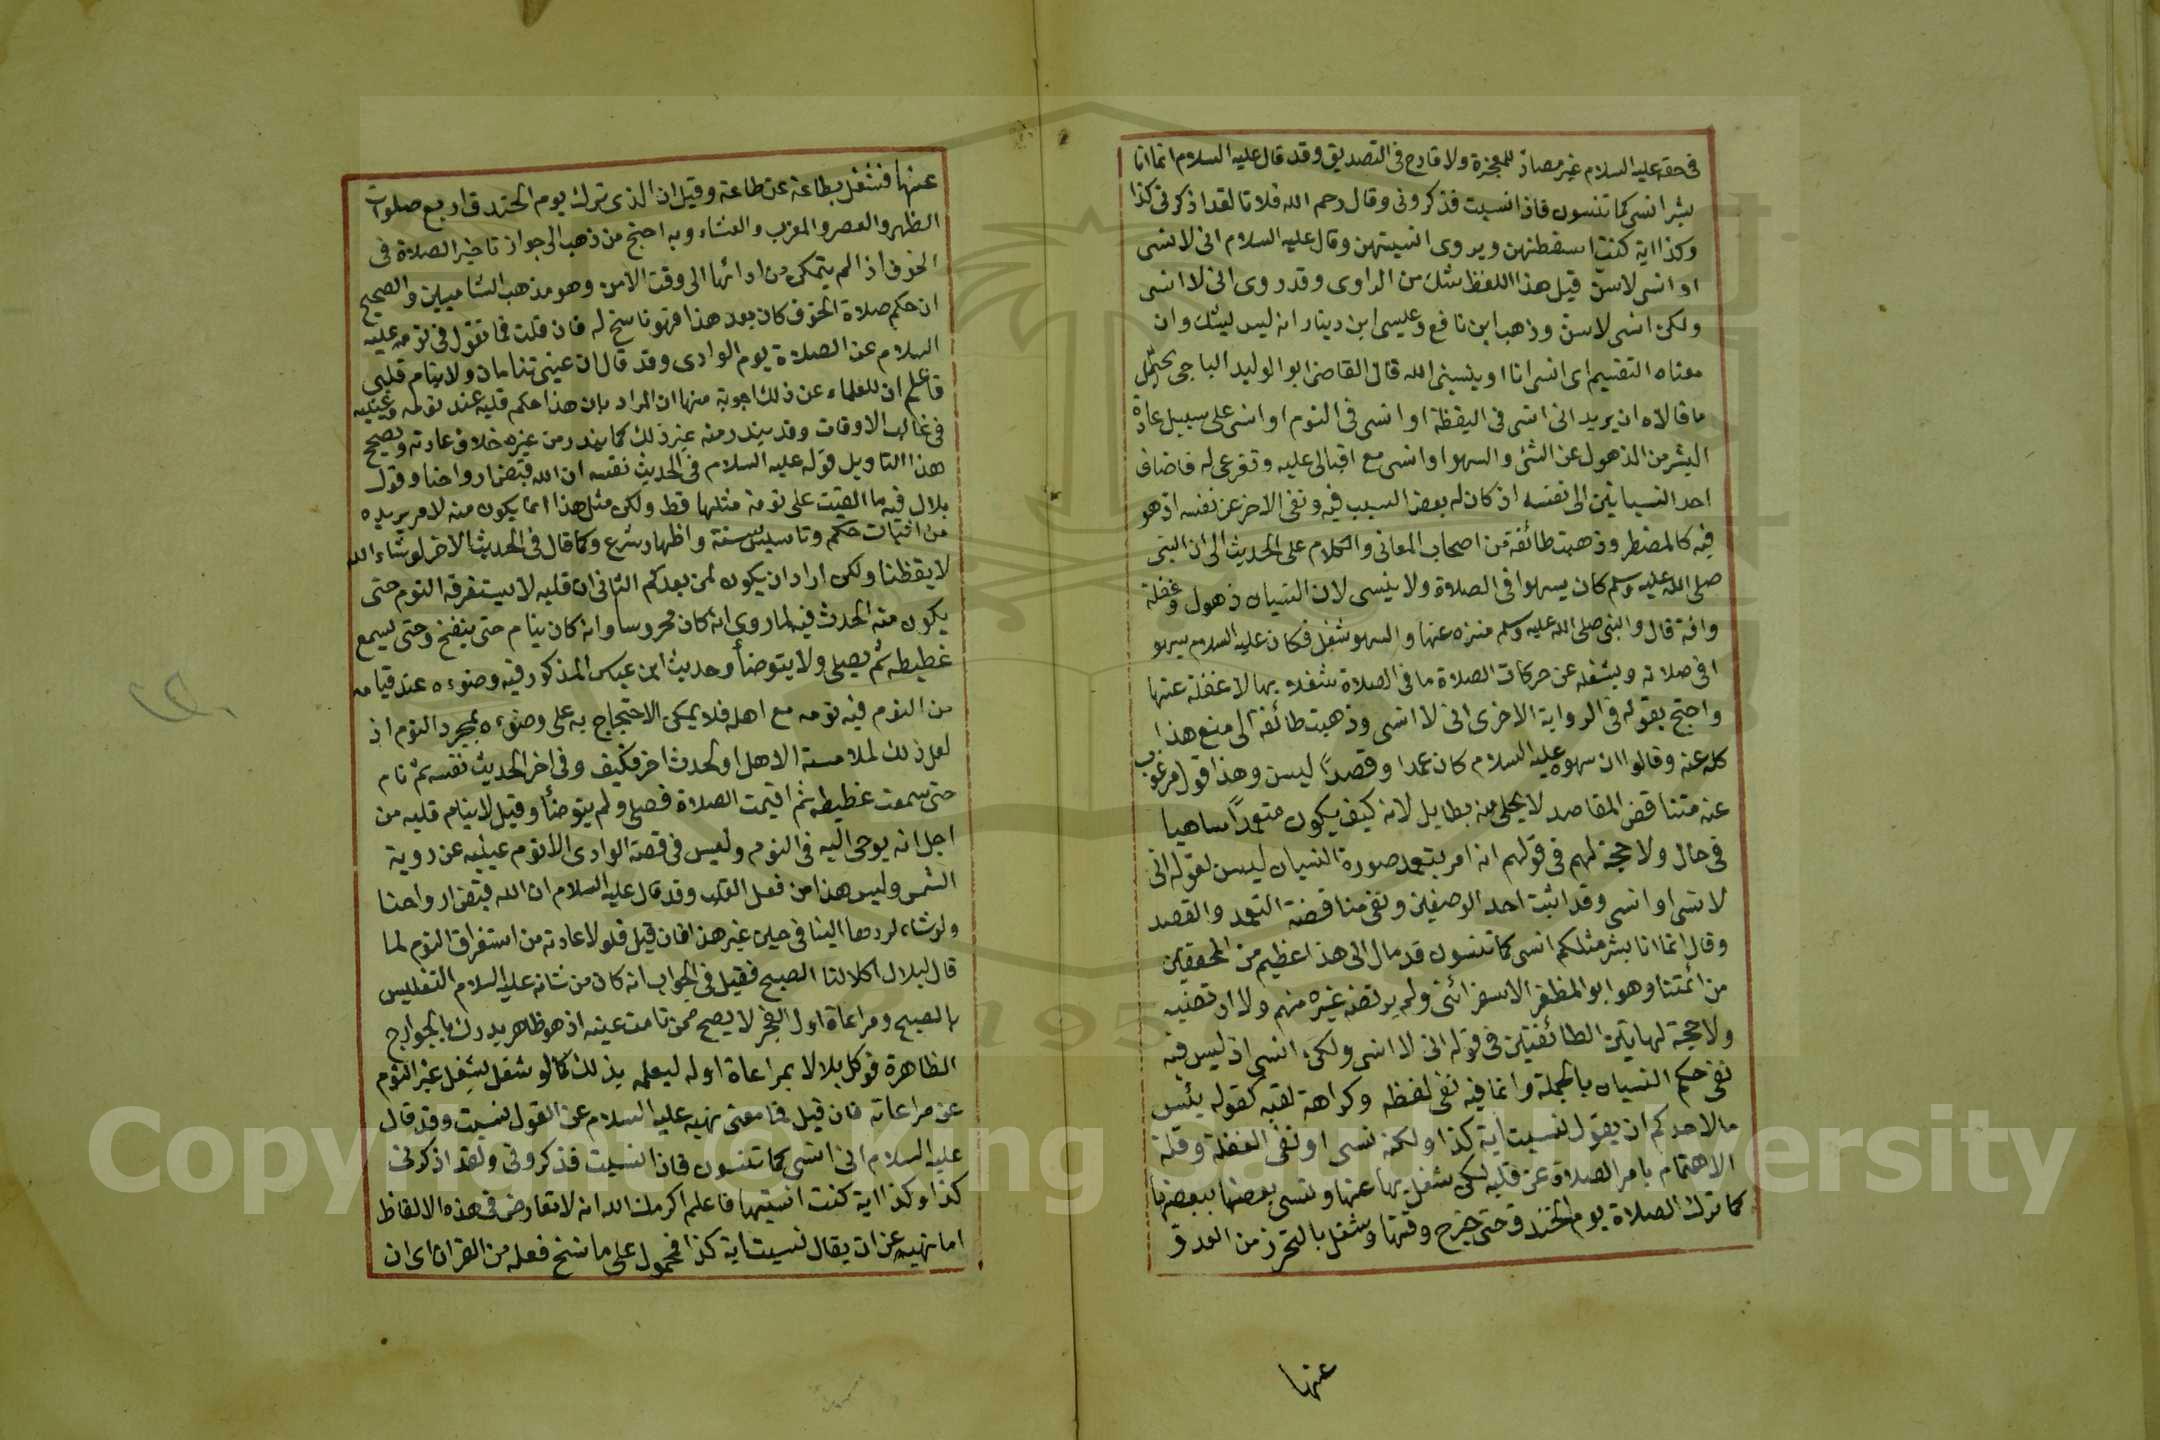 فى حقه عليه السلام غير مضاد للمعجزة ولا قادح فى التصديق وقد قال عليه السلام انما انا
بشر انسى كما تنسون فاذا نسيت فذكرونى وقال رحم الله فلانا لقد اذكرنى كذا
وكذا اية كنت اسقطتهن ويروى انسيتهن وقال عليه السلام انى لا نسى
او انسى لاسن قيل هذا اللفظ شك من الراوى وقد روى انى لا انسى
ولكن انسى لاسن وذهب ابن نافع وعيسى ابن دينار انه ليس ليشك وان
معناه التقسيم اى انسى انا او ينسينى الله قال القاضى ابو الوليد الباجى يحتمل
ما قالاه ان يريد انى انسى فى اليقظة او انسى فى النوم او انسى على سبيل عادة
البشر من الذهول عن الشئ والسهو او انسى مع اقبالى عليه وتفرغى له فاضاف
احد النسيانين الى نفسه اذ كان له بعض السبب فيه ونفى الاخر عن نفسه اذ هو
فيه كالمضطر وذهبت طائفة من اصحاب المعانى والكلام على الحديث الى ان النبى
صلى الله عليه وسلم كان يسهوا فى الصلاة ولا ينسى لان النسيان ذهول وغفلة
وافة قال والنبى صلى الله عليه وسلم منزه عنها والسهو شغل فكان عليه السلام يسهو
فى صلاته ويشغله عن حركات الصلاة ما فى الصلاة شغلا بها لا غفلة عنها
واحتج بقوله فى الرواية الاخرى انى لا انسى وذهبت طائفة الى منع هذا
كله عنه وقالوا ان سهوه عليه السلام كان عمدا وقصدًا ليسن وهذا قول مرغوب
عنه متناقض المقاصد لا يحلى منه بطايل لانه كيف يكون متعمدًا ساهيا
فى حال ولا حجة لهم فى قولهم انه امر بتعمد صورة النسيان ليسن لقوله انى
لا نسى او انسى وقد اثبت احد الوصفين ونفى مناقضة التعمد والقصد
وقال انما انا بشر مثلكم انسى كما تنسون قد مال الى هذا عظيم من المحققين
من ائمتنا وهو ابو المظفر الاسفرائنى ولم يرتضه غيره منهم ولا ارتضيه
ولا حجة لهاتين الطائفتين فى قوله انى لا انسى ولكن انسى اذ ليس فيه
نفى حكم النسيان بالجملة وانما فيه نفى لفظه وكراهة لقبه كقوله بئس
ما لاحدكم ان يقول نسيت اية كذا ولكنه نسى او نفى الغفلة وقلة
الاهتمام بامر الصلاة عن قلبه لكن شغل بها عنها ونسى بعضها ببعضها
كما ترك الصلاة يوم الخندق حتى خرج وقتها وشغل بالتحرز من العدو
عنها
عنها فشغل بطاعة عن طاعة وقيل ان الذى ترك يوم الخندق اربع صلوات
الظهر والعصر والمغرب والعشاء وبه احتج من ذهب الى جواز تاخير الصلاة فى
الخوف اذا لم يتمكن من ادائها الى وقت الامن وهو مذهب الشاميين والصحيح
ان حكم صلاة الخوف كان بعد هذا فهو ناسخ له فان قلت فما تقول فى نومه عليه
السلام عن الصلاة يوم الوادى وقد قال ان عينى تنامان ولا ينام قلبى
فاعلم ان للعلماء عن ذلك اجوبة منها ان المراد بان هذا حكم قلبه عند نومه وعينيه
فى غالب الاوقات وقد يندر منه غير ذلك كما يندر من غيره خلاف عادته ويصحح
هذا التاويل قوله عليه السلام فى الحديث نفسه ان الله قبض ارواحنا وقول
بلال فيه ما القيت على نومة مثلها قط ولكن مثل هذا انما يكون منه لامر يريده
من اثبات حكم وتاسيس سنة واظهار شرع وكما قال فى الحديث الاخر لو شاء الله
لايقظنا ولكن اراد ان يكون لمن بعدكم الثانى ان قلبه لا يستغرقه النوم حتى
يكون منه الحدث فيه لما روى انه كان محروسا وانه كان ينام حتى ينفخ وحتى يسمع
غطيطه ثم يصلى ولا يتوضأ وحديث ابن عباس المذكور فيه وضوءه عند قيامه
من النوم فيه نومه مع اهله فلا يمكن الاحتجاج به على وضوءه بمجرد النوم اذ
لعل ذلك لملامسة الاهل او لحدث اخر فكيف وفى اخر الحديث نفسه ثم نام
حتى سمعت غطيطه ثم اقيمت الصلاة فصلى ولم يتوضأ وقيل لا ينام قلبه من
اجل انه يوحى اليه فى النوم وليس فى قصة الوادى الا نوم عينيه عن روية
الشمس وليس هذا من فعل القلب وقد قال عليه السلام ان الله قبض ارواحنا
ولو شاء لردها الينا فى حين غير هذا فان قيل فلولا عادته من استغراق النوم لما
قال لبلال اكلا لنا الصبح فقيل فى الجواب انه كان من شانه عليه السلام التغليس
بالصبح ومراعاة اول الفجر لا يصح ممن نامت عينه اذ هو ظاهر يدرك بالجوارح
الظاهرة فوكل بلالا بمراعاة اوله ليعلمه بذلك كما لو شغل بشغل غير النوم
عن مراعاته فان قيل فما معنى نهيه عليه السلام عن القول نسيت وقد قال
عليه السلام انى انسى كما تنسون فاذا نسيت فذكرونى ولقد اذكرنى
كذا وكذا اية كنت انسيتها فاعلم اكرمك الله انه لا تعارض فى هذه الالفاظ
اما نهيه عن ان يقال نسيت اية كذا فمحمول على ما نسخ فعله من القران اى ان
Copyright © King Saud University
1957